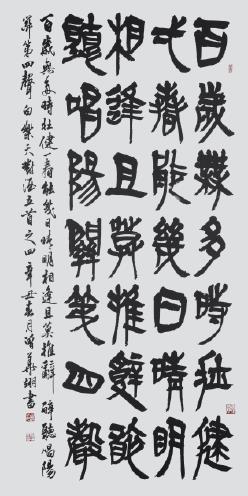 百歲無多時壯健
弌春能幾日晴明
相逢且莫推辭醉
聽唱陽關第四聲
百歲無多時壯健一春能幾日晴明相逢且莫推辭醉聽唱陽
關第四聲白樂天對酒五首之四辛丑春月書